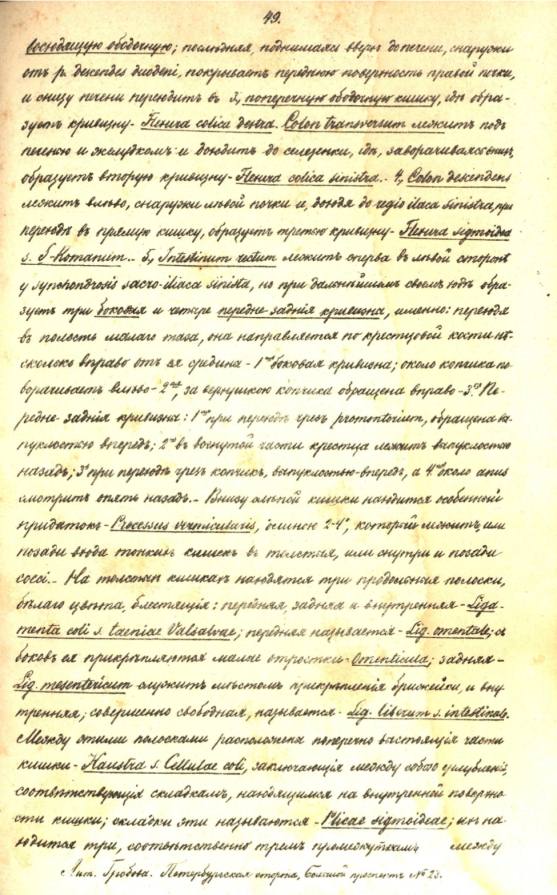 49.
восходящую ободочную; последняя, поднимаясь вверхъ до печени, снаружи
отъ p. descendes duodeni, покрываетъ переднюю поверхность правой почки,
и снизу печени переходитъ въ 3, поперечную ободочную кишку, гдѣ обра-
зуетъ кривизну - Flexura colica dextra. Colon transversum лежитъ подъ
печенью и желудкомъ и доходитъ до селезенки, гдѣ, заворачиваясь внизъ,
образуетъ вторую кривизну - Flexura colica sinistra. - 4, Colon descendens
лежитъ влѣво, снаружи лѣвой почки и, доходя до regio iliaca sinistra, при
переходѣ въ прямую кишку, образуетъ третью кривизну - Flexura sigmoidea
s. S-Romanum. - 5, Intestinum rectum лежитъ сперва въ лѣвой сторонѣ
у synchondrosis sacro-iliaca sinista, но при дальнѣйшемъ своемъ ходѣ обра-
зуетъ три боковыя и четыре передне-заднія кривизны, именно: переходя
въ полость малаго таза, она направляется по крестцовой кости нѣ-
сколько вправо отъ ея средины - 1ая боковая кривизна; около копчика по-
ворачиваетъ влѣво - 2ая, за верхушкою копчика обращена вправо - 3я. Пе-
редне-заднія кривизны: 1ая при переходѣ чрезъ promontorium, обращена вы-
пуклостью впередъ; 2ая въ вогнутой части крестца лежитъ выпуклостью
назадъ; 3я при переходѣ чрезъ копчикъ, выпуклостью-впередъ, а 4ая около anus
смотритъ опять назадъ. - Внизу слѣпой кишки находится особенный
придатокъ - Processus vermicularis, длиною 2-4", который лежитъ или
позади входа тонкихъ кишекъ въ толстыя, или снутри и позади
coeci. - На толстыхъ кишкахъ находятся три продольныя полоски,
бѣлаго цвѣта, блестящія: передняя, задняя и внутренняя - Liga-
menta coli s. taeniae Valsalvae; передняя называется - Lig. omentale; съ
боковъ ея прикрѣпляются малые отростки - Omenticula; задняя -
Lig. mesentericum служитъ мѣстомъ прикрѣпленія брыжейки, и вну-
тренняя, совершенно свободная, называется - Lig. liberum s. intestinale.
Между этими полосками расположены поперечно выстоящія части
кишки - Haustra s. Cellulae coli, заключающія между собою углубленія,
соотвѣтствующія складкамъ, находящимся на внутренней поверхно-
сти кишки; складки эти называются - Plicae sigmoideae; ихъ на-
ходится три, соотвѣтственно тремъ промежуткамъ между
Лит. Гробова. Петербургская сторона, Большой проспектъ № 23.